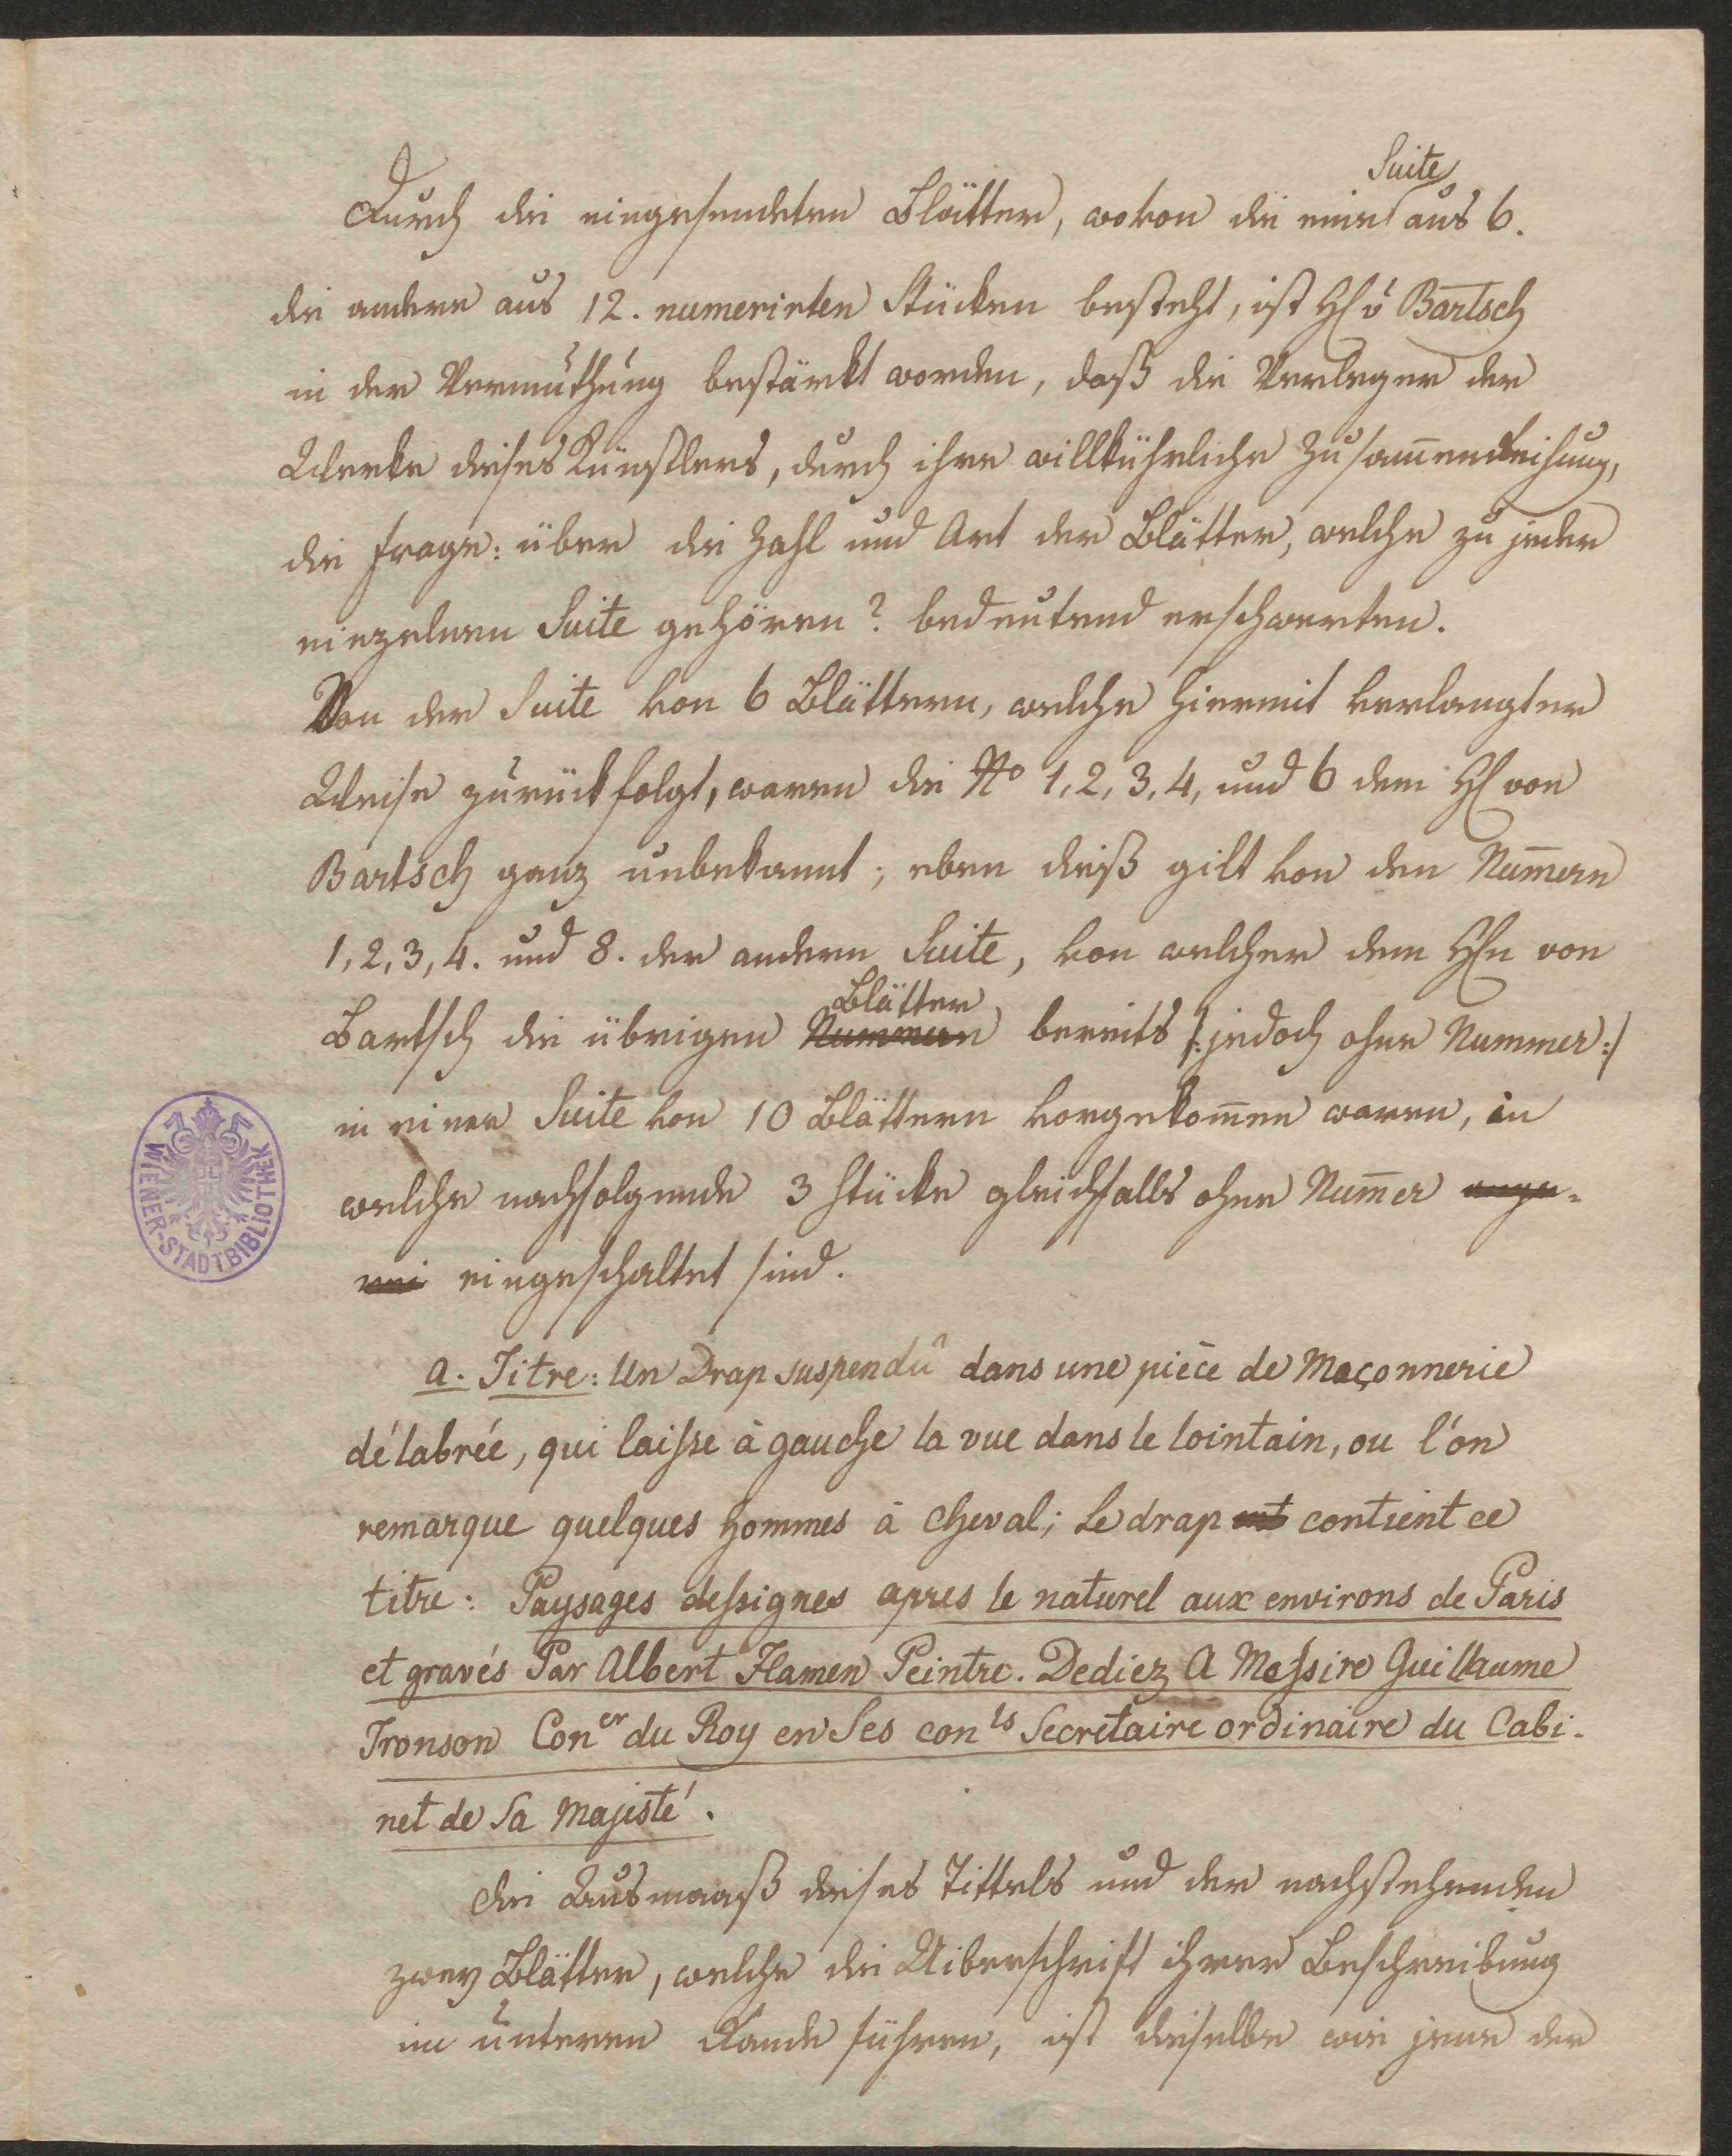 Suite
Durch die eingesendeten Blätter, wovon die eine aus 6.
die andere aus 12. numerirten Stücken besteht, ist H v Bartsch
in der Vermuthung bestärkt worden, daß die Verleger der
Werke dieses Künstlers, durch ihre willkührliche Zusam̅enreihung,
die Frage: über die Zahl und Art der Blätter, welche zu jeder
einzelnen Suite gehören? bedeutend erschwerten.
Von der Suite von 6 Blättern, welche hiermit verlangter
Weise zurückfolgt, waren die No 1, 2, 3, 4, und 6 dem H von
Bartsch ganz unbekannt; eben dieß gilt von den Num̅ern
1, 2, 3, 4. und 8. der andern Suite, von welcher dem Hn von
Blätter
Bartsch die übrigen Nummern bereits /: jedoch ohne Nummer :/
in einer Suite von 10 Blättern vorgekom̅en waren, in
welche nachfolgende 3 Stücke gleichfalls ohne Num̅er
eingeschaltet sind.
a. Titre: Un Drap suspendû dans une pièce de Maçonnerie
délabrée, qui laisse à gauche la vue dans le lointain, ou l'on
remarque quelques hommes à cheval; Le drap est contient ce
titre: Paysages dessignes apres le naturel aux environs de Paris
et gravés Par Albert Flamen Peintre. Dediez A Messire Guillaume
Tronson Coner du Roy en Ses conls Secretaire ordinaire du Cabi-
net de Sa Majesté.
Die Ausmaaß dieses Tittels und der nachstehenden
zwey Blätter, welche die Uiberschrift ihrer Beschreibung
im unteren Rande führen, ist dieselbe wie jene der
WIENER-STADTBIBLIOTHEK